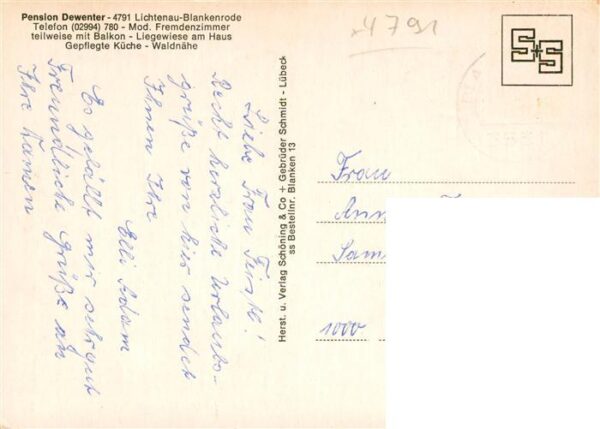 Pension Dewenter - 4791 Lichtenau-Blankenrode
Telefon (02994) 780 - Mod. Fremdenzimmer
teilweise mit Balkon - Liegewiese am Haus
Gepflegte Küche - Waldnähe
4791
S+S
Liebe Frau
Recht herzliche Urlaubs-
grüße von hier sendet
Ihnen Ihre
Elli Adam
Es gefällt mir sehr gut
Freundliche Grüße an
Ihre
Herst. u. Verlag Schöning & Co + Gebrüder Schmidt - Lübeck
ss Bestellnr. Blanken 13
Frau
1000